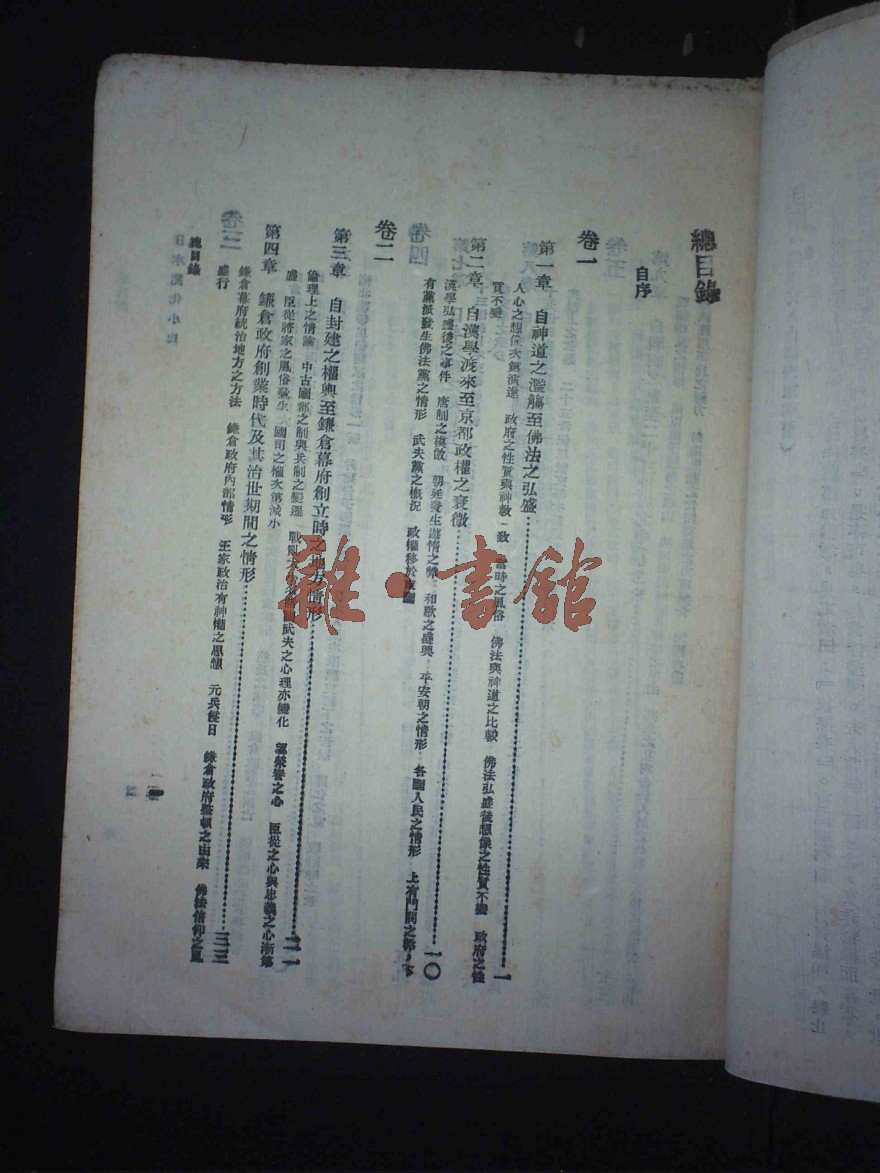 總目錄
自序
卷一
第一章 自神道之濫觴至佛法之弘盛 一
人心之想像次第演進 政府之性質與神教一致 當時之風俗 佛法與神道之比較 佛法弘盛後想像之性質不變 政府之性
質不變
第二章 自漢學渡來至京都政權之衰微 一〇
漢學弘進後之事件 唐制之模倣 朝廷發生遊惰之弊 和歌之盛興 平安朝之情形 各國人民之情形 上有門閥之弊下
有黨派發生佛法黨之情形 武夫黨之概況 政權移於
卷二
第三章 自封建之權輿至鎌倉幕府創立時之地方情形 二一
倫理上之情誼 中古國郡之制與兵制之變遷 武夫之心理亦變化 望榮譽之心 臣從之心與忠義之心漸第
盛 臣從將家之風俗發生 國司之權次第減小
第四章 鎌倉政府創業時代及其治世期間之情形 三三
鎌倉幕府統治地方之方法 鎌倉政府內部情形 王家政治有神權之思想 元兵侵日 鎌倉政府整頓之由來 佛法信仰之風
盛行
總目錄
一
日本開化小史
雜·書館